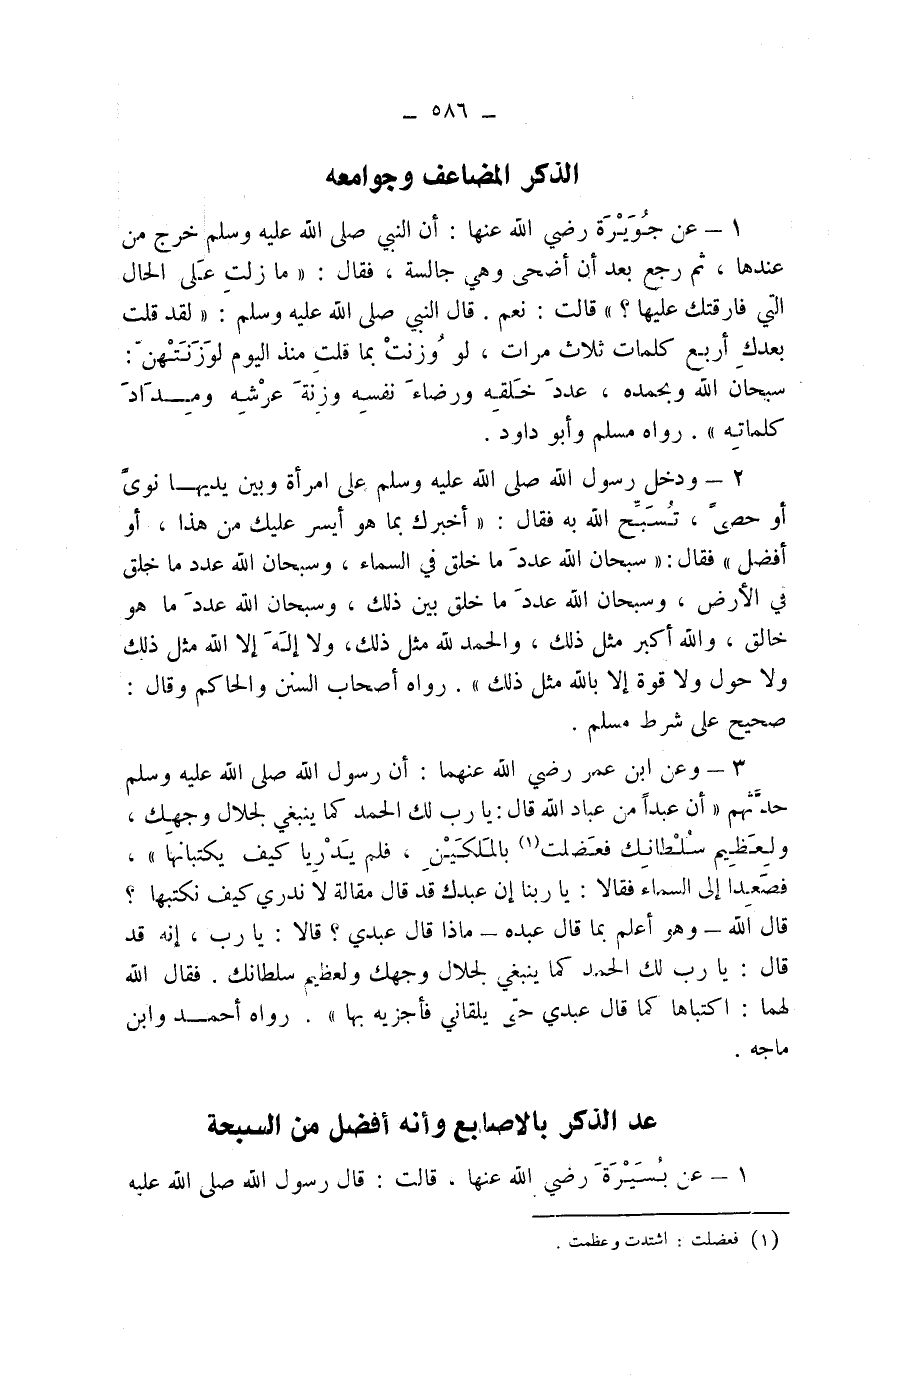 ـ ٥٨٦ ـ
الذكر المضاعف وجوامعه
١ – عن جُوَيْرَة رضي الله عنها : أن النبي صلى الله عليه وسلم خرج من
عندها ، ثم رجع بعد أن أضحى وهي جالسة ، فقال : « ما زلتِ عَلى الحال
التي فارقتك عليها ؟ » قالت : نعم . قال النبي صلى الله عليه وسلم : « لقد قلت
بعدكِ أربع كلمات ثلاث مرات ، لو وُزنتْ بما قلتِ منذ اليوم لوَزَنَتْهنَّ :
سبحان الله وبحمده ، عددَ خَلقِه ورضاءَ نفسِه وزِنةَ عرْشِه ومِــدَادَ
كلماتِه » . رواه مسلم وأبو داود .
٢ – ودخل رسول الله صلى الله عليه وسلم على امرأة وبين يديهــا نوىً
أو حصىً ، تُسَبِّح الله به فقال : « أخبرك بما هو أيسر عليك من هذا ، أو
أفضل » فقال : « سبحان الله عددَ ما خلق في السماء ، وسبحان الله عدد ما خلق
في الأرض ، وسبحان الله عددَ ما خلق بين ذلك ، وسبحان الله عددَ ما هو
خالق ، والله أكبر مثل ذلك ، والحمد لله مثل ذلك، ولا إلَهَ إلا الله مثل ذلك
ولا حول ولا قوة إلا بالله مثل ذلك » . رواه أصحاب السنن والحاكم وقال :
صحيح على شرط مسلم .
٣ – وعن ابن عمر رضي الله عنهما : أن رسول الله صلى الله عليه وسلم
حدَّثهم « أن عبداً من عباد الله قال : يا رب لك الحمد كما ينبغي لجلال وجهِك ،
ولِعَظيم سُلْطانِك فعَضلت(١) بالمَلَكَيْنِ ، فلم يَدْرِيا كيف يكتبانها » ،
فصَعِدا إلى السماء فقالا : يا ربنا إن عبدك قد قال مقالة لا ندري كيف نكتبها ؟
قال الله – وهو أعلم بما قال عبده – ماذا قال عبدي ؟ قالا : يا رب ، إنه قد
قال : يا رب لك الحمد كما ينبغي لجلال وجهك ولعظيم سلطانك . فقال الله
لهما : اكتباها كما قال عبدي حتى يلقاني فأجزيه بها » . رواه أحمــد وابن
ماجه .
عد الذكر بالاصابع وأنه أفضل من السبحة
١ – عن بُسَيْرَةَ رضي الله عنها . قالت : قال رسول الله صلى الله عليه
(١) فعضلت : اشتدت وعظمت .